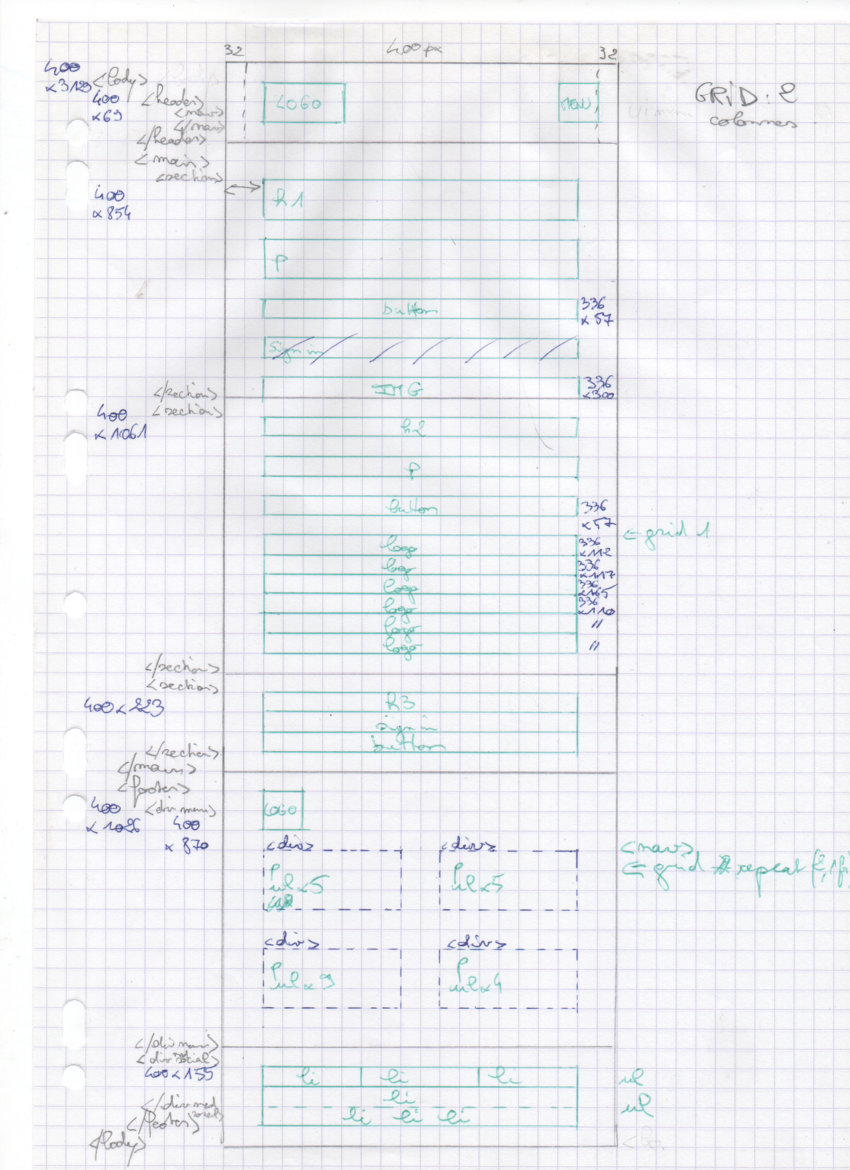 32 400px 32
400
x3120
<body>
400
x69
<header>
<nav>
</nav>
</header>
LOGO
GRID: 2
colonnes
<main>
<section>
400
x854
h1
P
button
336
x57
sign in
IMG
336
x300
</section>
<section>
400
x1061
h2
P
button
336
x57
<= grid 1
logo
336
x112
logo
336
x117
logo
336
x165
logo
336
x110
logo
"
logo
"
</section>
<section>
400x223
h3
sign in
button
</section>
</main>
<footer>
400
x1026
<div nav>
400
x 870
LOGO
<div> <div>
<nav>
<= grid repeat (2,1fr
P
ulx5
P
ulx5
<div> <div>
P
ulx9
P
ulx4
</div nav>
<div social>
400x155
li li li
ul
li
ul
li li li
</footer>
</body>